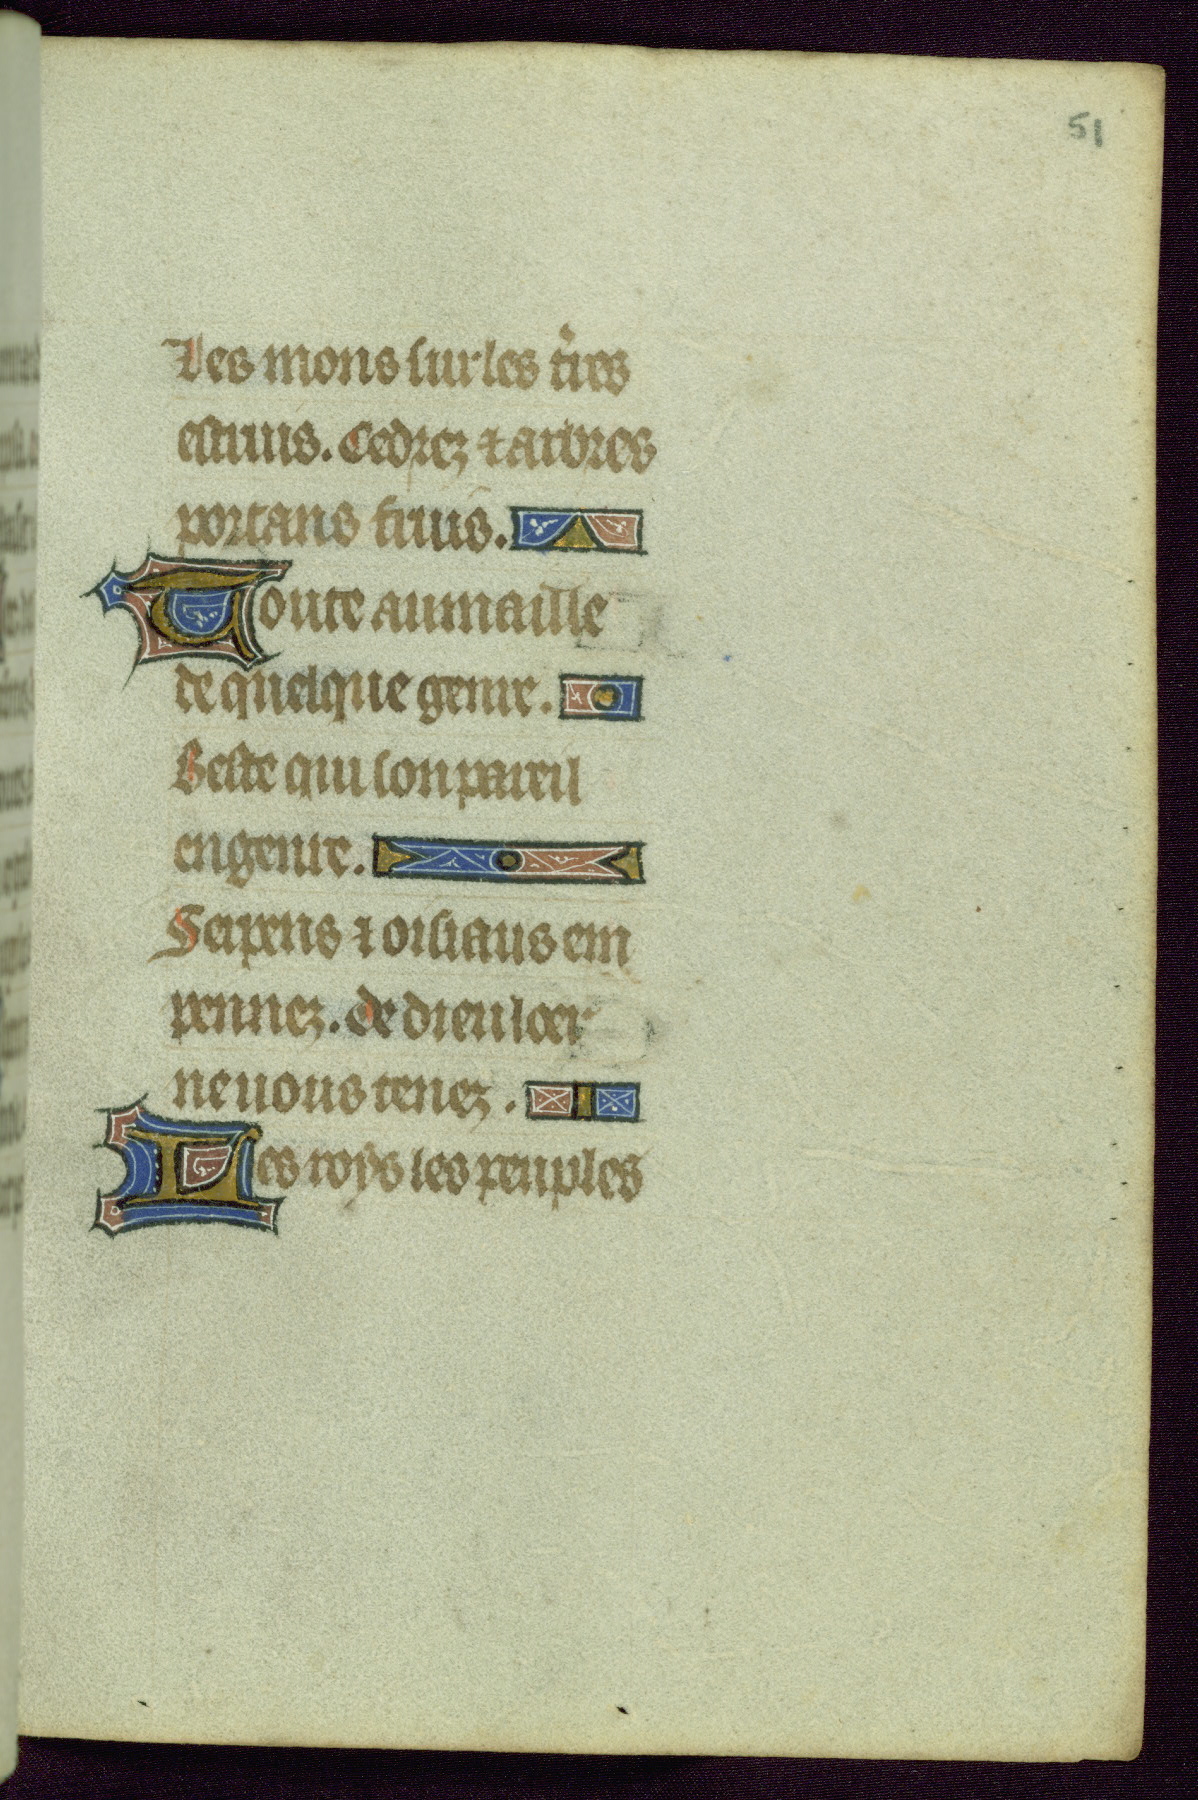 51
Les mons sur les t̃res
estruis. Cedrez ⁊ arbres
portans fruis.
Toute aumaille
de quelque genre.
Beste qui son pareil
engenre.
Serpens ⁊ oisiaus em
pennez. de dieu loer
ne uous tenez.
Les roys les peuples